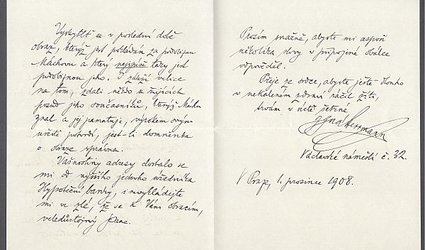 Vyskytl se v poslední době
obraz, který jest pokládán za podobiznu
Máchovu a který nejspíše také jest
podobiznou jeho. I záleží velice
na tom, zdali někdo ze žijících
posud jeho současníků, který Máchu
znal a jej pamatuje, výrokem svým
určitě potvrdí, jest-li domněnka
o obraze správna.
Vašnostiny adresy dostalo se
mi od nynějšího jednoho úředníka
Hypoteční banky, a nevykládejte
mi ve zlé, že se k Vám obracím,
veledůstojný pane.
Prosím snažně, abyste mi aspoň
několika slovy v připojené obálce
odpověděl.
Přeje ze srdce, abyste ještě dlouho
v nekaleném zdraví ráčil žíti,
trvám v úctě
Václavské náměstí č. 32.
V Praze, 1. prosince 1908.